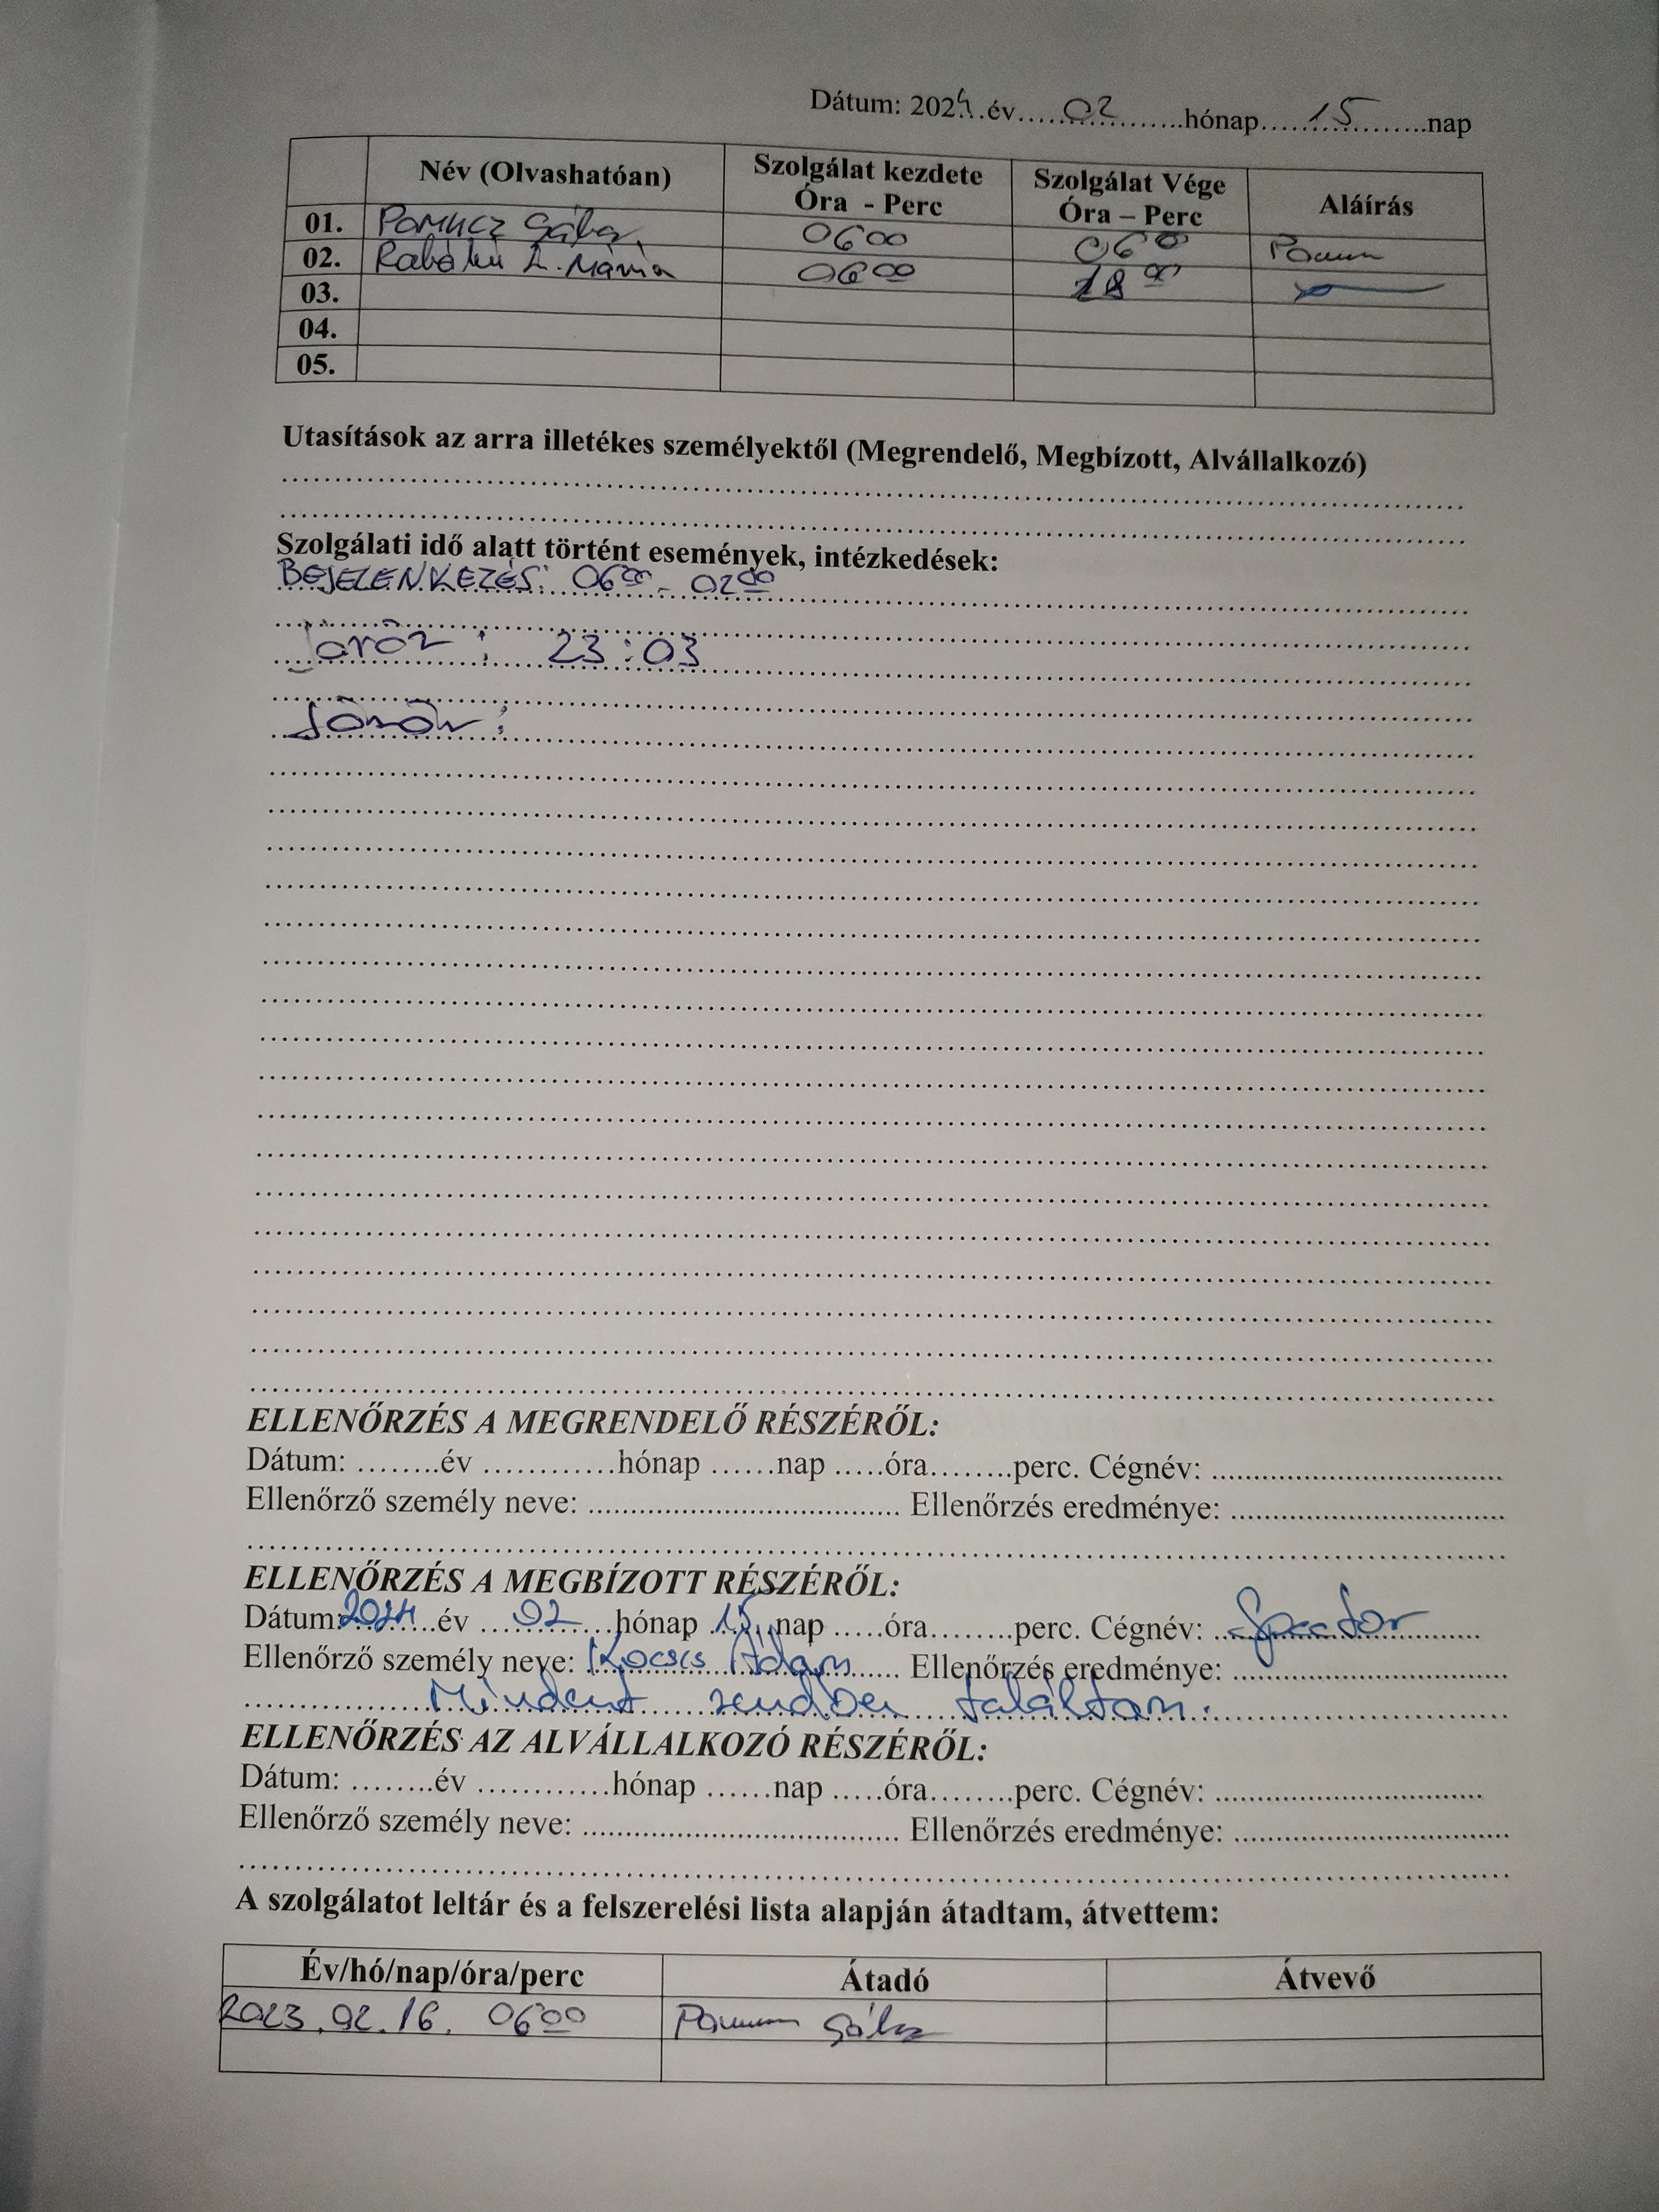 Dátum: 2024 év 02 hónap 15 nap
Név (Olvashatóan) Szolgálat kezdete Óra - Perc Szolgálat Vége Óra – Perc Aláírás
01. Gábor 06 00 06 00
02. Mária 06 00 18 00
03.
04.
05.
Utasítások az arra illetékes személyektől (Megrendelő, Megbízott, Alvállalkozó)
Szolgálati idő alatt történt események, intézkedések:
BEJELENKEZÉS: 06 00 - 02 00
Járőr : 23:03
Járőr :
ELLENŐRZÉS A MEGRENDELŐ RÉSZÉRŐL:
Dátum: ........év ............hónap ......nap .....óra........perc. Cégnév: ..............................
Ellenőrző személy neve: .............................. Ellenőrzés eredménye: ..............................
ELLENŐRZÉS A MEGBÍZOTT RÉSZÉRŐL:
Dátum: 2024 év 02 hónap 15 nap .....óra........perc. Cégnév:
Ellenőrző személy neve: Kocsis Ádám Ellenőrzés eredménye: ..............................
Mindent rendben találtam.
ELLENŐRZÉS AZ ALVÁLLALKOZÓ RÉSZÉRŐL:
Dátum: ........év ............hónap ......nap .....óra........perc. Cégnév: ..............................
Ellenőrző személy neve: .............................. Ellenőrzés eredménye: ..............................
A szolgálatot leltár és a felszerelési lista alapján átadtam, átvettem:
Év/hó/nap/óra/perc Átadó Átvevő
2023.02.16. 06 00 Gábor